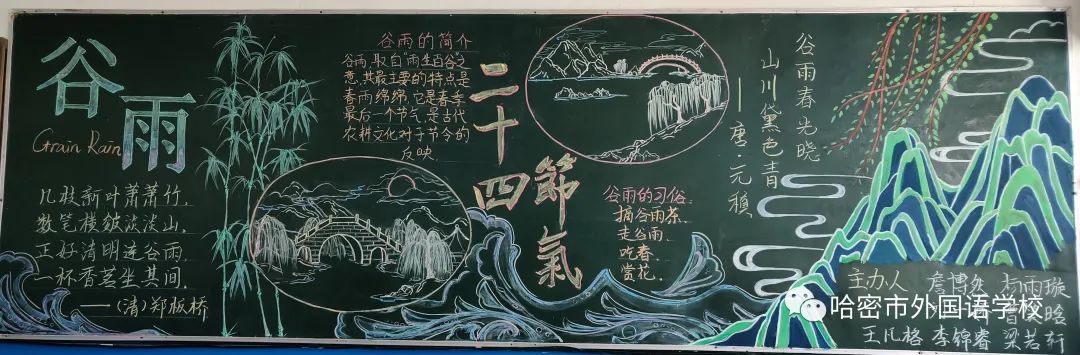 谷雨
Grain Rain
几枝新叶萧萧竹,
数笔横皴淡淡山.
正好清明连谷雨.
一杯香茗坐其间.
——(清)郑板桥
谷雨的简介
谷雨,取自"雨生百谷"之
意.其最主要的特点是
春雨绵绵,它是春季
最后一个节气,是古代
农耕文化对于节令的
反映.
二十四
節氣
谷雨的习俗.
摘谷雨茶.
走谷雨.
吃春.
赏花.
谷雨春光晓
山川黛色青
——唐·元稹
主办人 詹博然 杨雨璇
王凡格 李锦睿 梁若轩
哈密市外国语学校